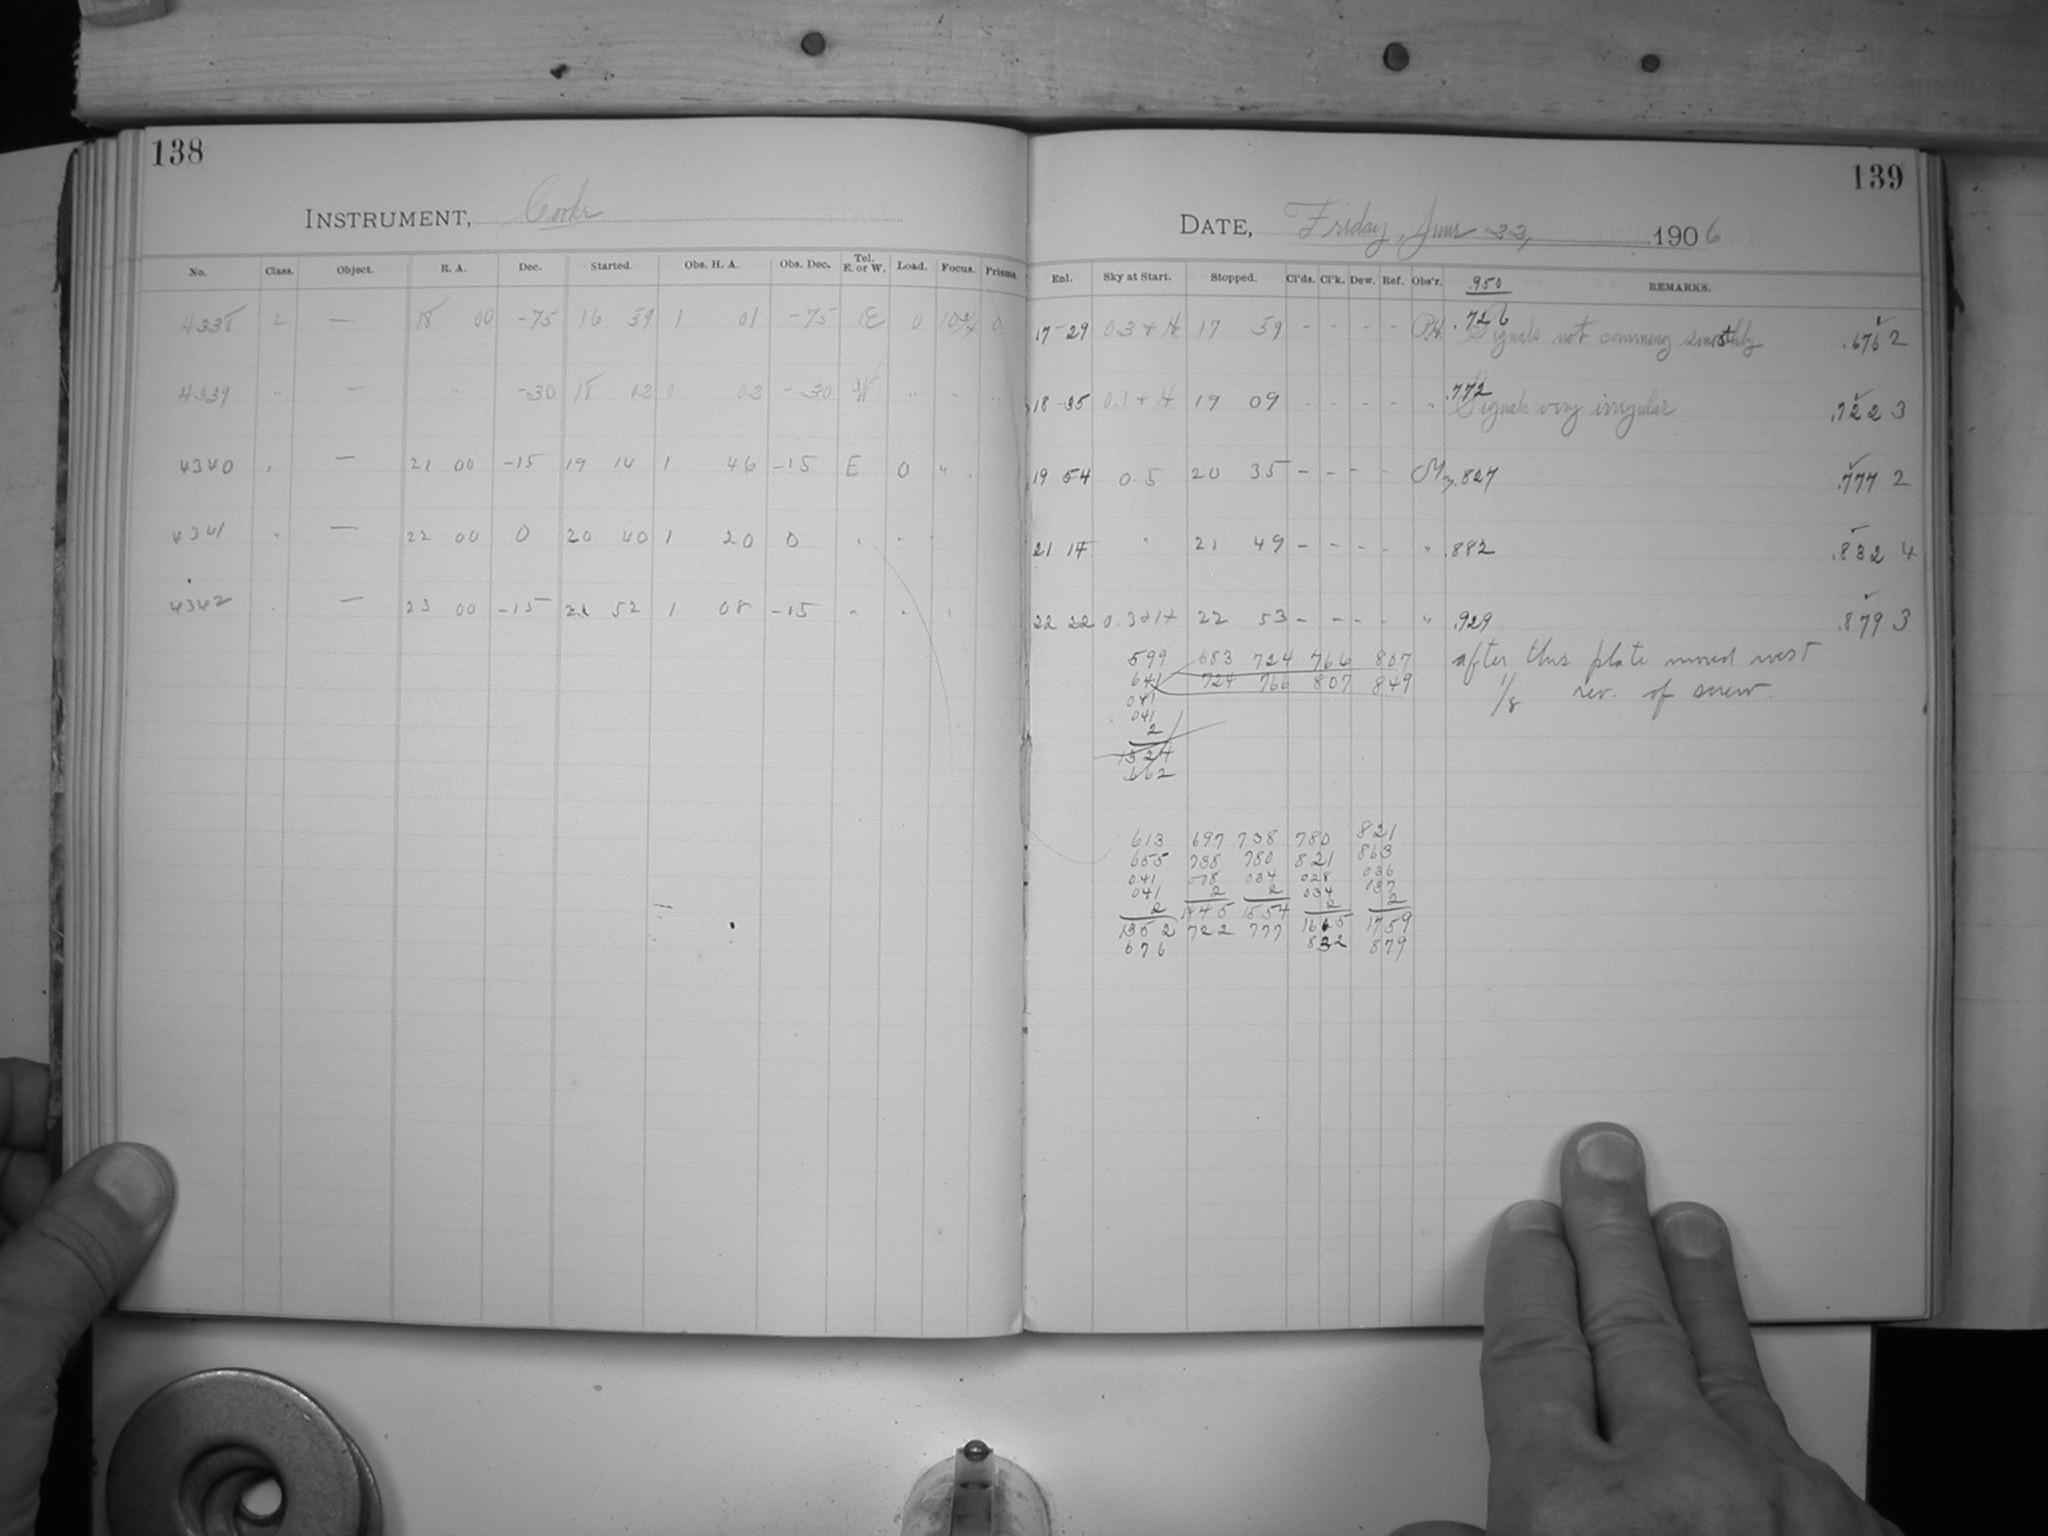 138
INSTRUMENT, Cooke
No. Class. Object. R. A. Dec. Started. Obs. H. A. Obs. Dec. Tel. E. or W. Load. Focus. Prisms.
4338 2 — 18 00 -75 16 59 1 01 -75 E 0 0
4339 " — " -30 18 02 0 02 -30 W " " "
4340 — 21 00 -15 19 14 1 46 -15 E 0 "
4341 " — 22 00 0 20 40 1 20 0 " " "
4342 — 23 00 -15 21 52 1 08 -15 " " "
139
DATE, Friday, June 22, 1906
Enl. Sky at Start. Stopped. Cl'ds. Cl'k. Dew. Ref. Obs'r. .950 REMARKS.
17-29 0.3 + H 17 59 - - - - .726 Signals not comming smoothly .676 2
18-35 0.1 + H 19 09 - - - - " .772 Signals very irregular .722 3
19 54 0.5 20 35 - - - - M .827 .777 2
21 14 " 21 49 - - - - " .882 .832 4
22 22 22 53 - - - - " .929 .879 3
599 683 724 766 807 after this plate moved west
641 724 766 807 849 1/8 rev. of screw.
041
041
2
1324
662
613 697 738 780 821
655 738 780 821 863
041 008 034 028 036
041 2 2 034 137
2 1445 1554 2 2
1352 722 777 1665 1759
676 832 879